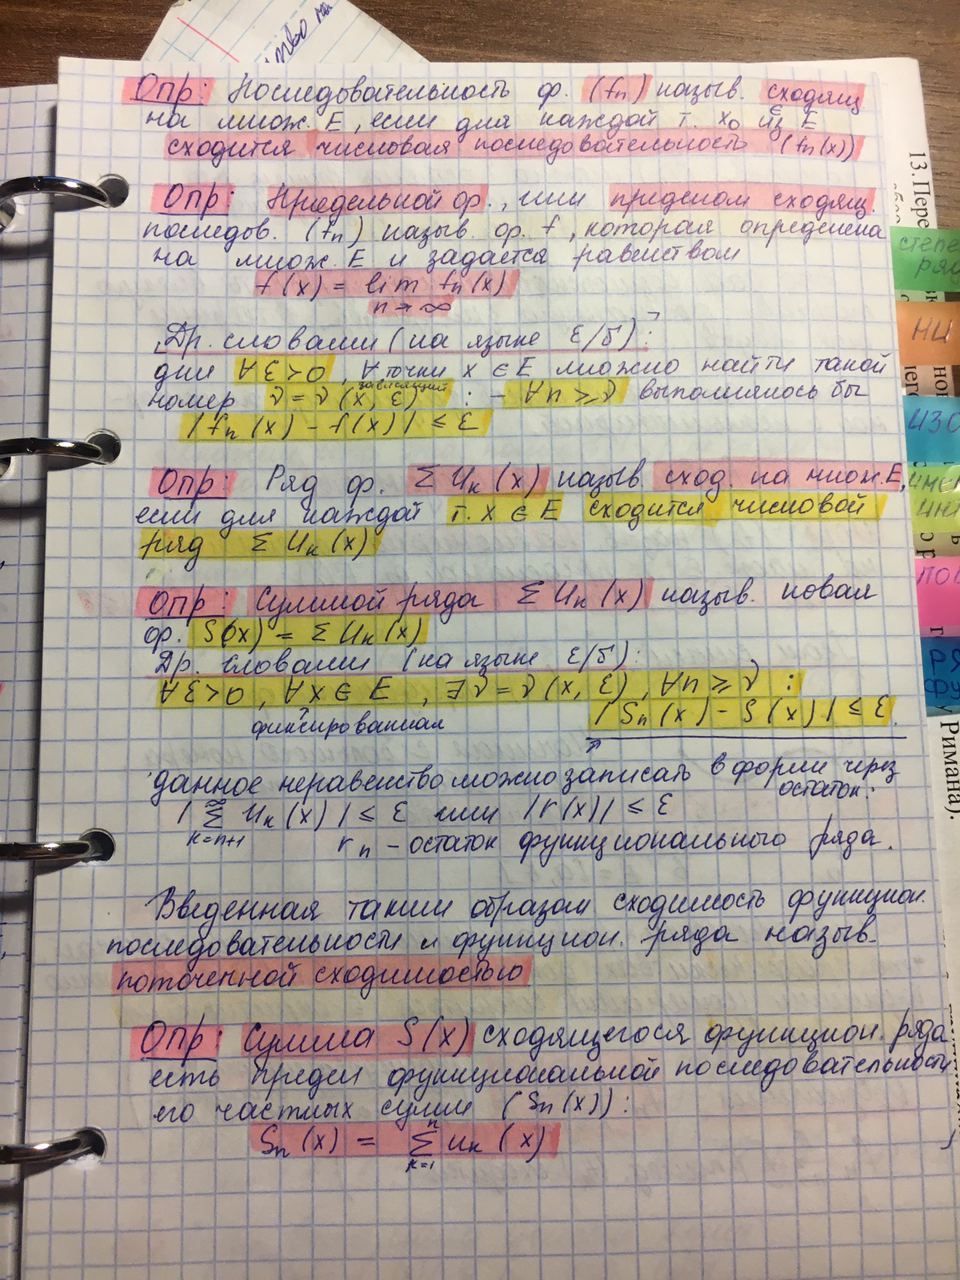 Опр: Последовательность ф. (fn) назыв. сходящ
на множ. E, если для каждой т. x₀ из E
сходится числовая последовательность (fn(x))
Опр: Предельной ф., или пределом сходящ.
последов. (fn) назыв. ф. f, которая определена
на множ. E и задаётся равенством
f(x) = lim fn(x)
n→∞
Др. словами (на языке ε/δ):
для ∀ε>0, ∀ точки x ∈ E можно найти такой
зависящий
номер ν = ν(x, ε) : - ∀n ≥ ν выполнялось бы
|fn(x) - f(x)| ≤ ε
Опр: Ряд ф. Σ Uк(x) назыв. сход. на множ. E,
если для каждой т. x ∈ E сходится числовой
ряд Σ Uк(x)
Опр: Суммой ряда Σ Uк(x) назыв. новая
ф. S(x) = Σ Uк(x)
Др. словами (на языке ε/δ):
∀ε>0, ∀x ∈ E, ∃ν = ν(x, ε), ∀n ≥ ν :
фиксированная |Sn(x) - S(x)| ≤ ε.
данное неравенство можно записать в форме через
остаток:
| Σ Uк(x) | ≤ ε или |r(x)| ≤ ε
∞
к=n+1 rn - остаток функционального ряда.
Введенная таким образом сходимость функцион.
последовательности и функцион. ряда назыв.
поточечной сходимостью
Опр: Сумма S(x) сходящегося функцион. ряда
есть предел функциональной последовательности
его частных сумм (Sn(x)):
n
Sn(x) = Σ uк(x)
к=1
13. Пере
степе
ряд
ни
изо
инт
пов
ря
фу
Римана).